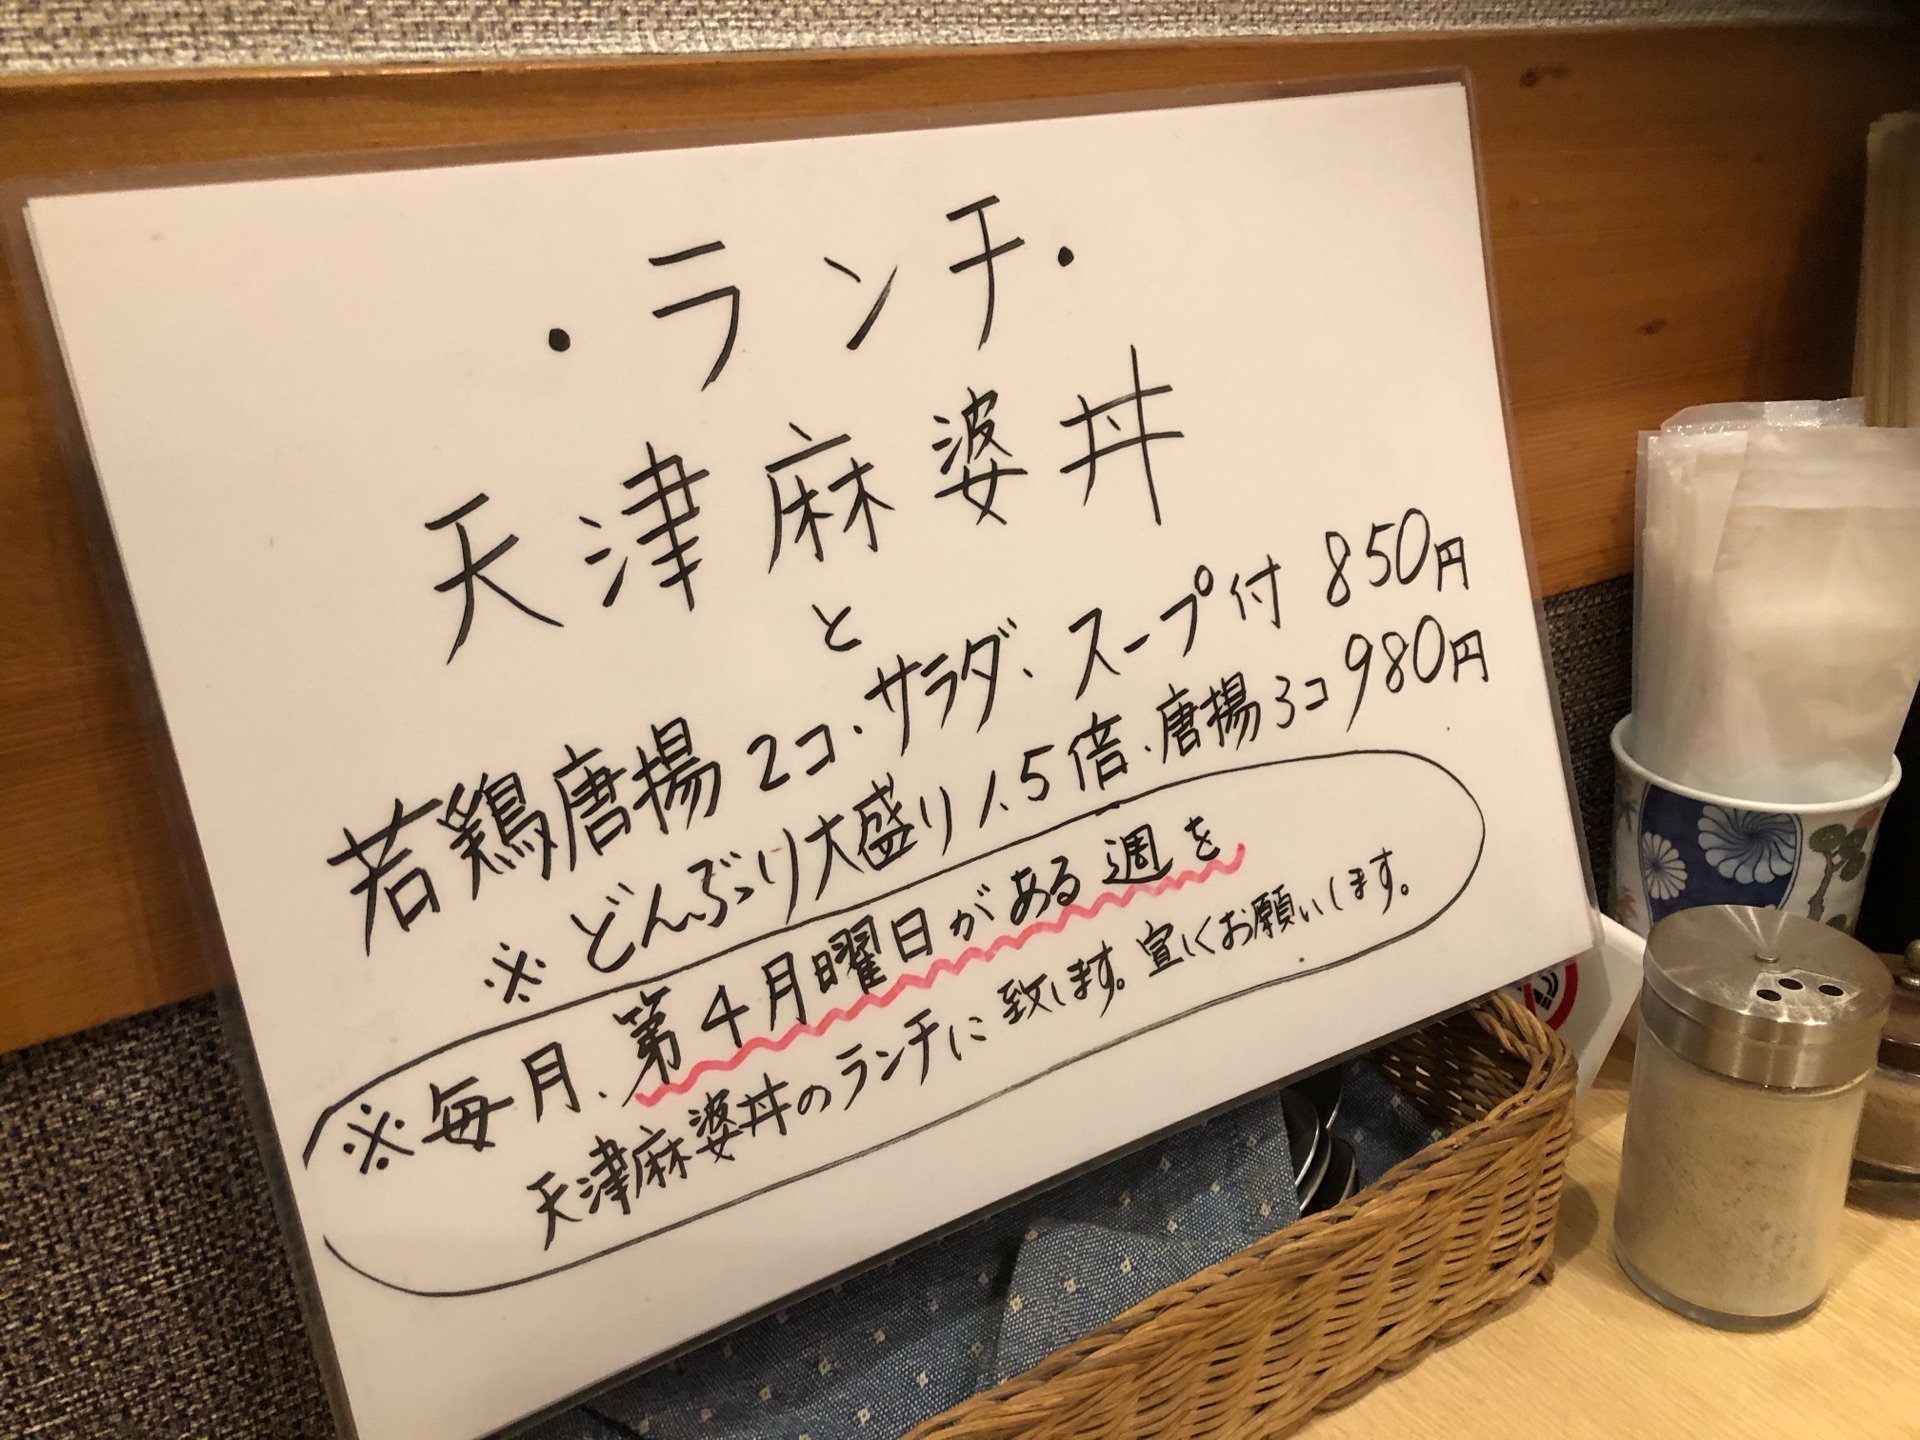 ・ランチ・
天津麻婆丼
と
若鶏唐揚2コ、サラダ、スープ付 850円
※どんぶり大盛り1.5倍、唐揚3コ 980円
※毎月、第4月曜日がある週を
天津麻婆丼のランチに致します。宜しくお願いします。